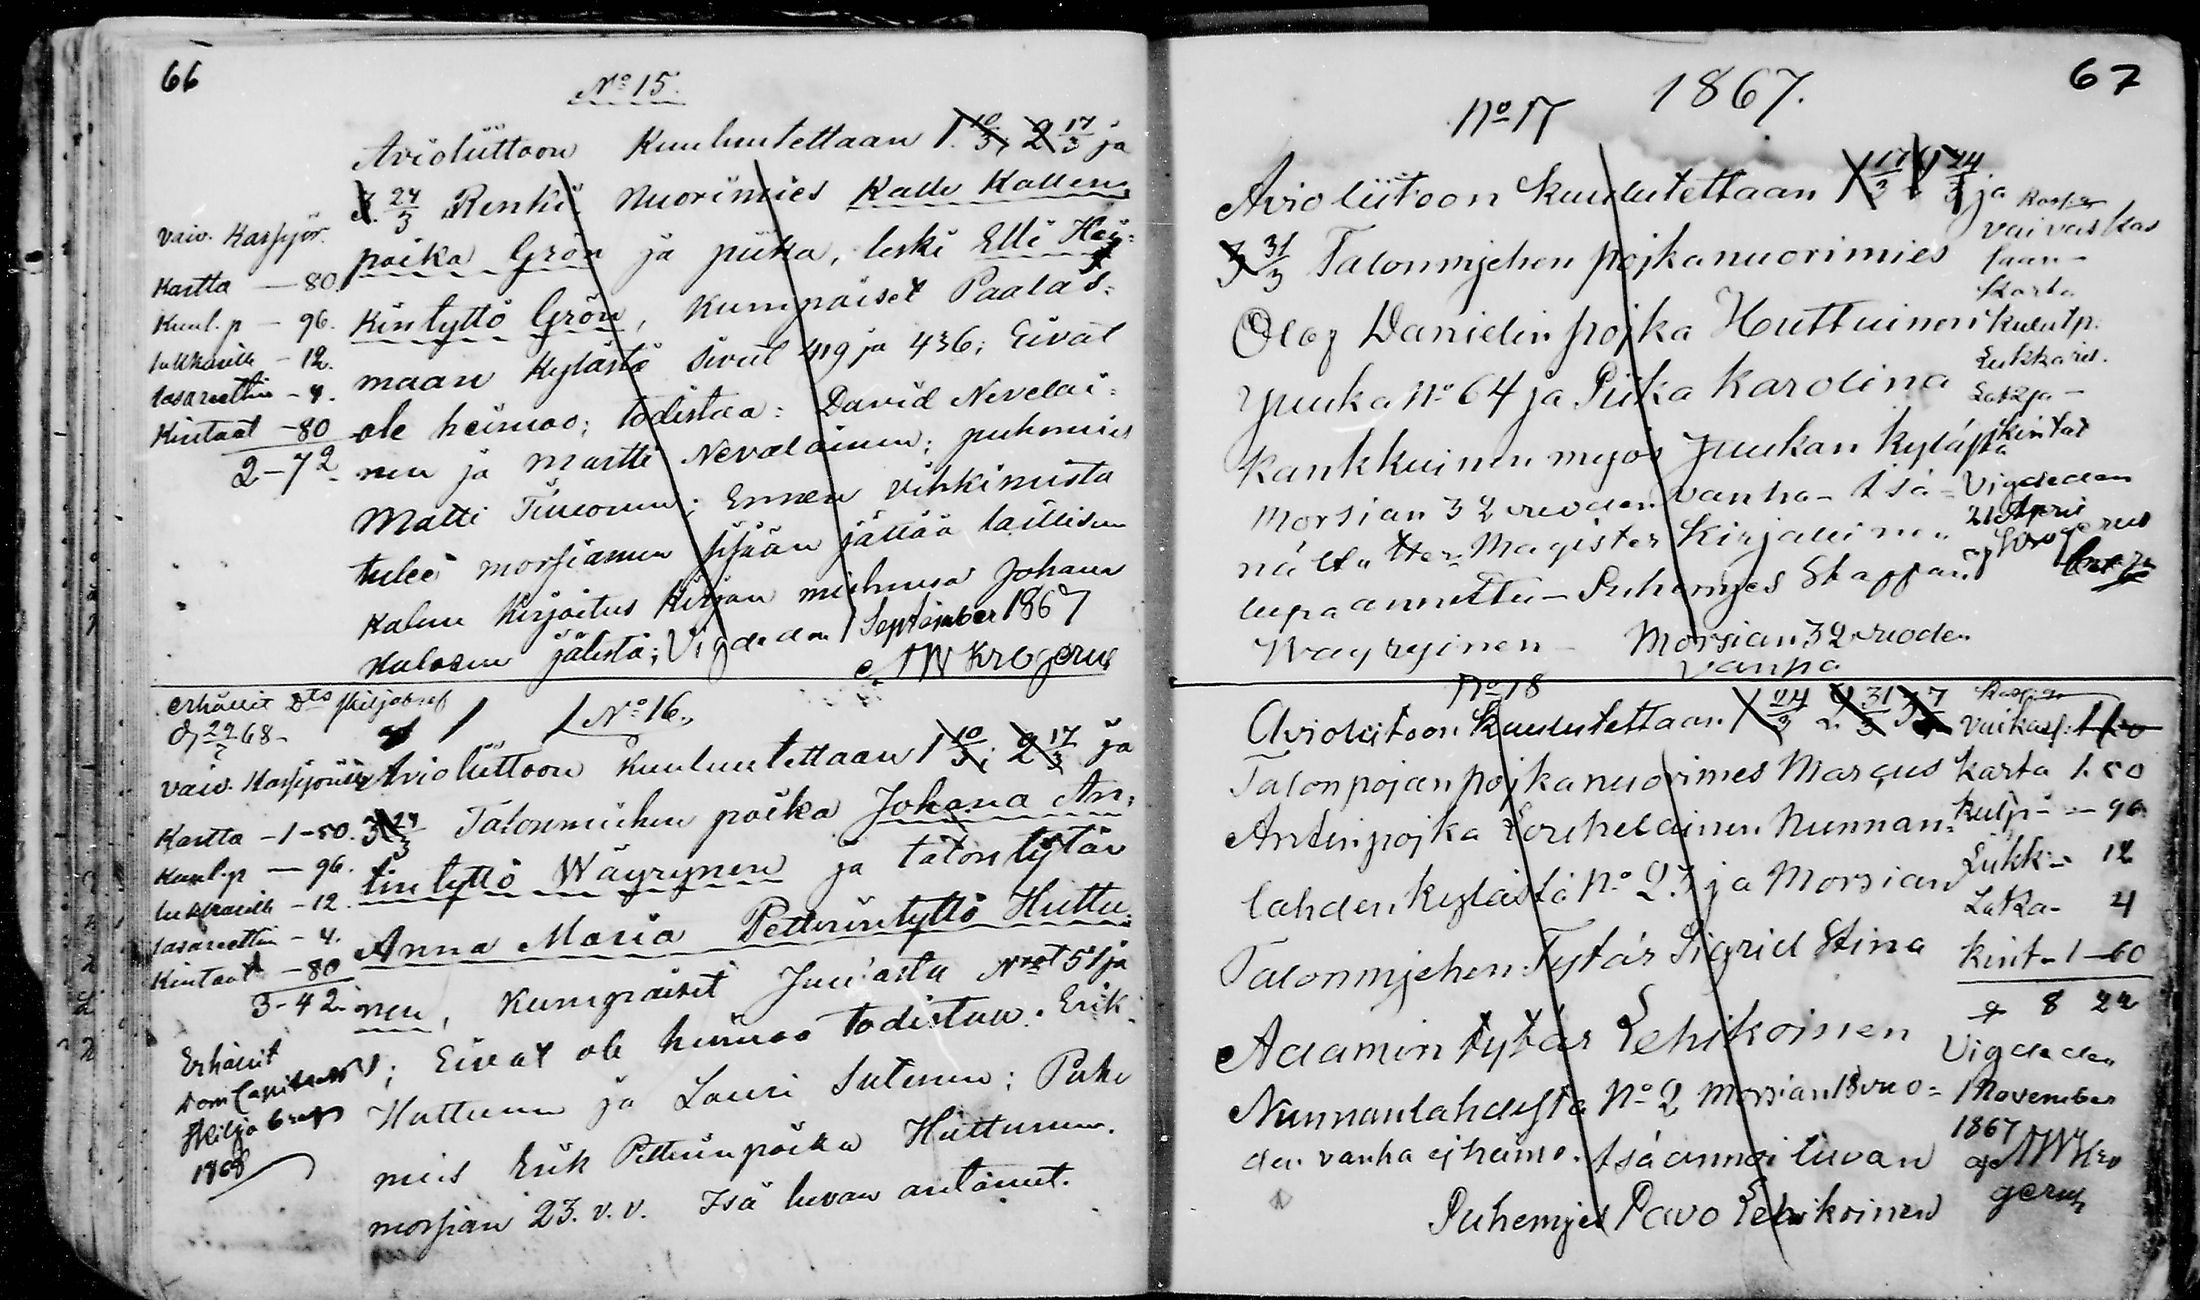 66
No 15.
Avioliittoon Kuulutettaan 1. 10/3, 2 17/3 ja
3. 24/3 Renki Nuorimies Kalle Kallen
poika Grön ja piika, leski Elli Hei-
kintyttö Grön, Kumpaiset Paalas-
maan Kylästä sivul 419 ja 436; Eivät
ole heimoo; todistaa: David Nevelai-
nen ja Martti Nevalainen; puhemies
Matti Timonen; Ennen vihkimistä
tulee morsiamen sisään jättää laillisen
kalun kirjoitus kirjan miehensä Johana
Kulosen jälestä; Vigde den 1 September 1867
NW Krogerus
vaiv. Kassjör.
Kartta — 80.
Kuul. p — 96.
lukkarille — 12.
lasarettiin — 4.
Kintaat — 80
2 — 72
erhållit Dts skiljobref
d 22/2 68 —
No 16.
Avioliittoon Kuuluutettaan 1 10/3; 2 17/3 ja
3 24/3 Talonmiehen poika Johana An-
tintyttö Wäyrynen ja talon tytär
Anna Maria Petterintyttö Huttu-
nen, Kumpaiset Juuasta Nrot 51 ja
; Eivät ole heimoo todistaa. Erik
Huttunen ja Lauri Sutinen; Puhe
mies Erik Petterinpoika Huttunen.
morsian 23. v. v. Isä luvan antanut.
Kartta — 1 — 50.
Kuul. p — 96.
lukkarille — 12.
lasarettiin — 4.
Kintaat — 80
3 — 42
Erhållit
Dom Capitlets
Skiljobref
1868
67
1867.
No 17
Avioliitoon kuulutettaan 1 17/3 2 24/3 ja
3 31/3 Talonmjehen pojka nuorimies
Olof Danielin pojka Huttuinen
Yuuka No 64 ja Piika Karolina
Kankkuinen myös Juukan kylästä
Morsian 32 vuoden vanha — Isä-
Magister Kirjal
lupa annettu — Puhemjes Staffan
Wäyryinen — Morsian 32 vuoden
vanha
vaivas kas
saan —
Karta
Kulutp.
Lukkaril.
kintat
Vigde den
21 Apri
No 18
Avioliitoon kuulutettaan 1 24/3 2. 31/3 3 7/4
Talonpojan pojka nuorimes Marcus
Antinpojka Lorihelainen Nunnan-
lahden kylästä No 23 ja Morsian
Talonmjehen Tytär Sigrid Stina
Aadamin tytär Lehikoinen
Nunnanlahdesta No 2 Morsian 18 vuo-
den vanha ej heimo. Isä annoi luvan
Puhemjes Pavo Lehikoinen
Vaikass:
Karta 1. 50
Kulp — — 96
Lukk — 12
Laza — 4
Kint — 1 — 60
8 22
Vigde den
1 November
1867
af NW Kro
gerus